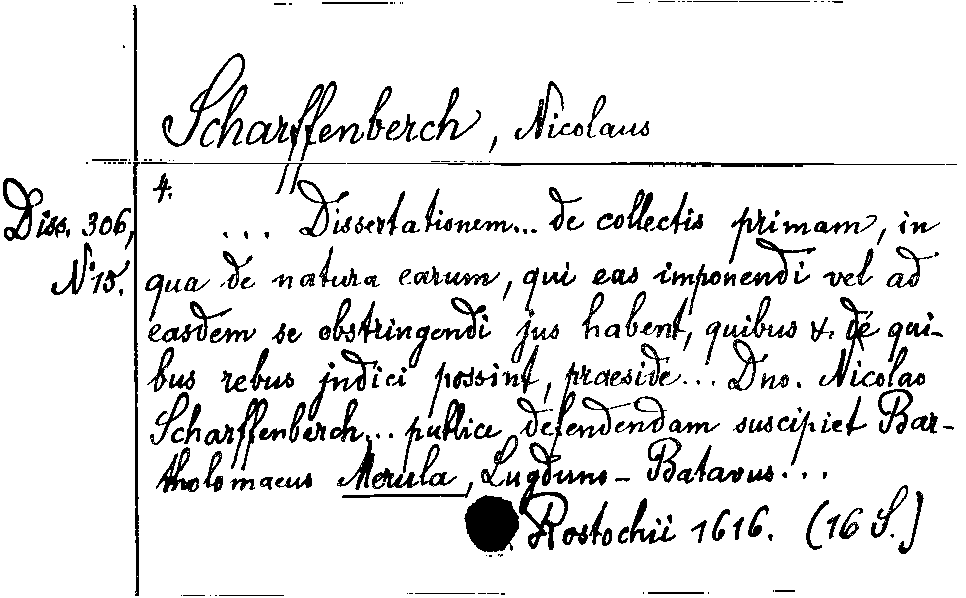 Scharffenberch, Nicolaus
4.
Diss. 306,
N. 15.
... Dissertationem... de collectis primam, in
qua de natura earum, qui eas imponendi vel ad
easdem se obstringendi jus habent, quibus &. de qui-
bus rebus indici possint, praeside... Dno. Nicolao
Scharffenberch... publice defendendam suscipiet Bar-
tholomaeus Merula, Lugduno-Batavus...
Rostochii 1616. (16 S.)